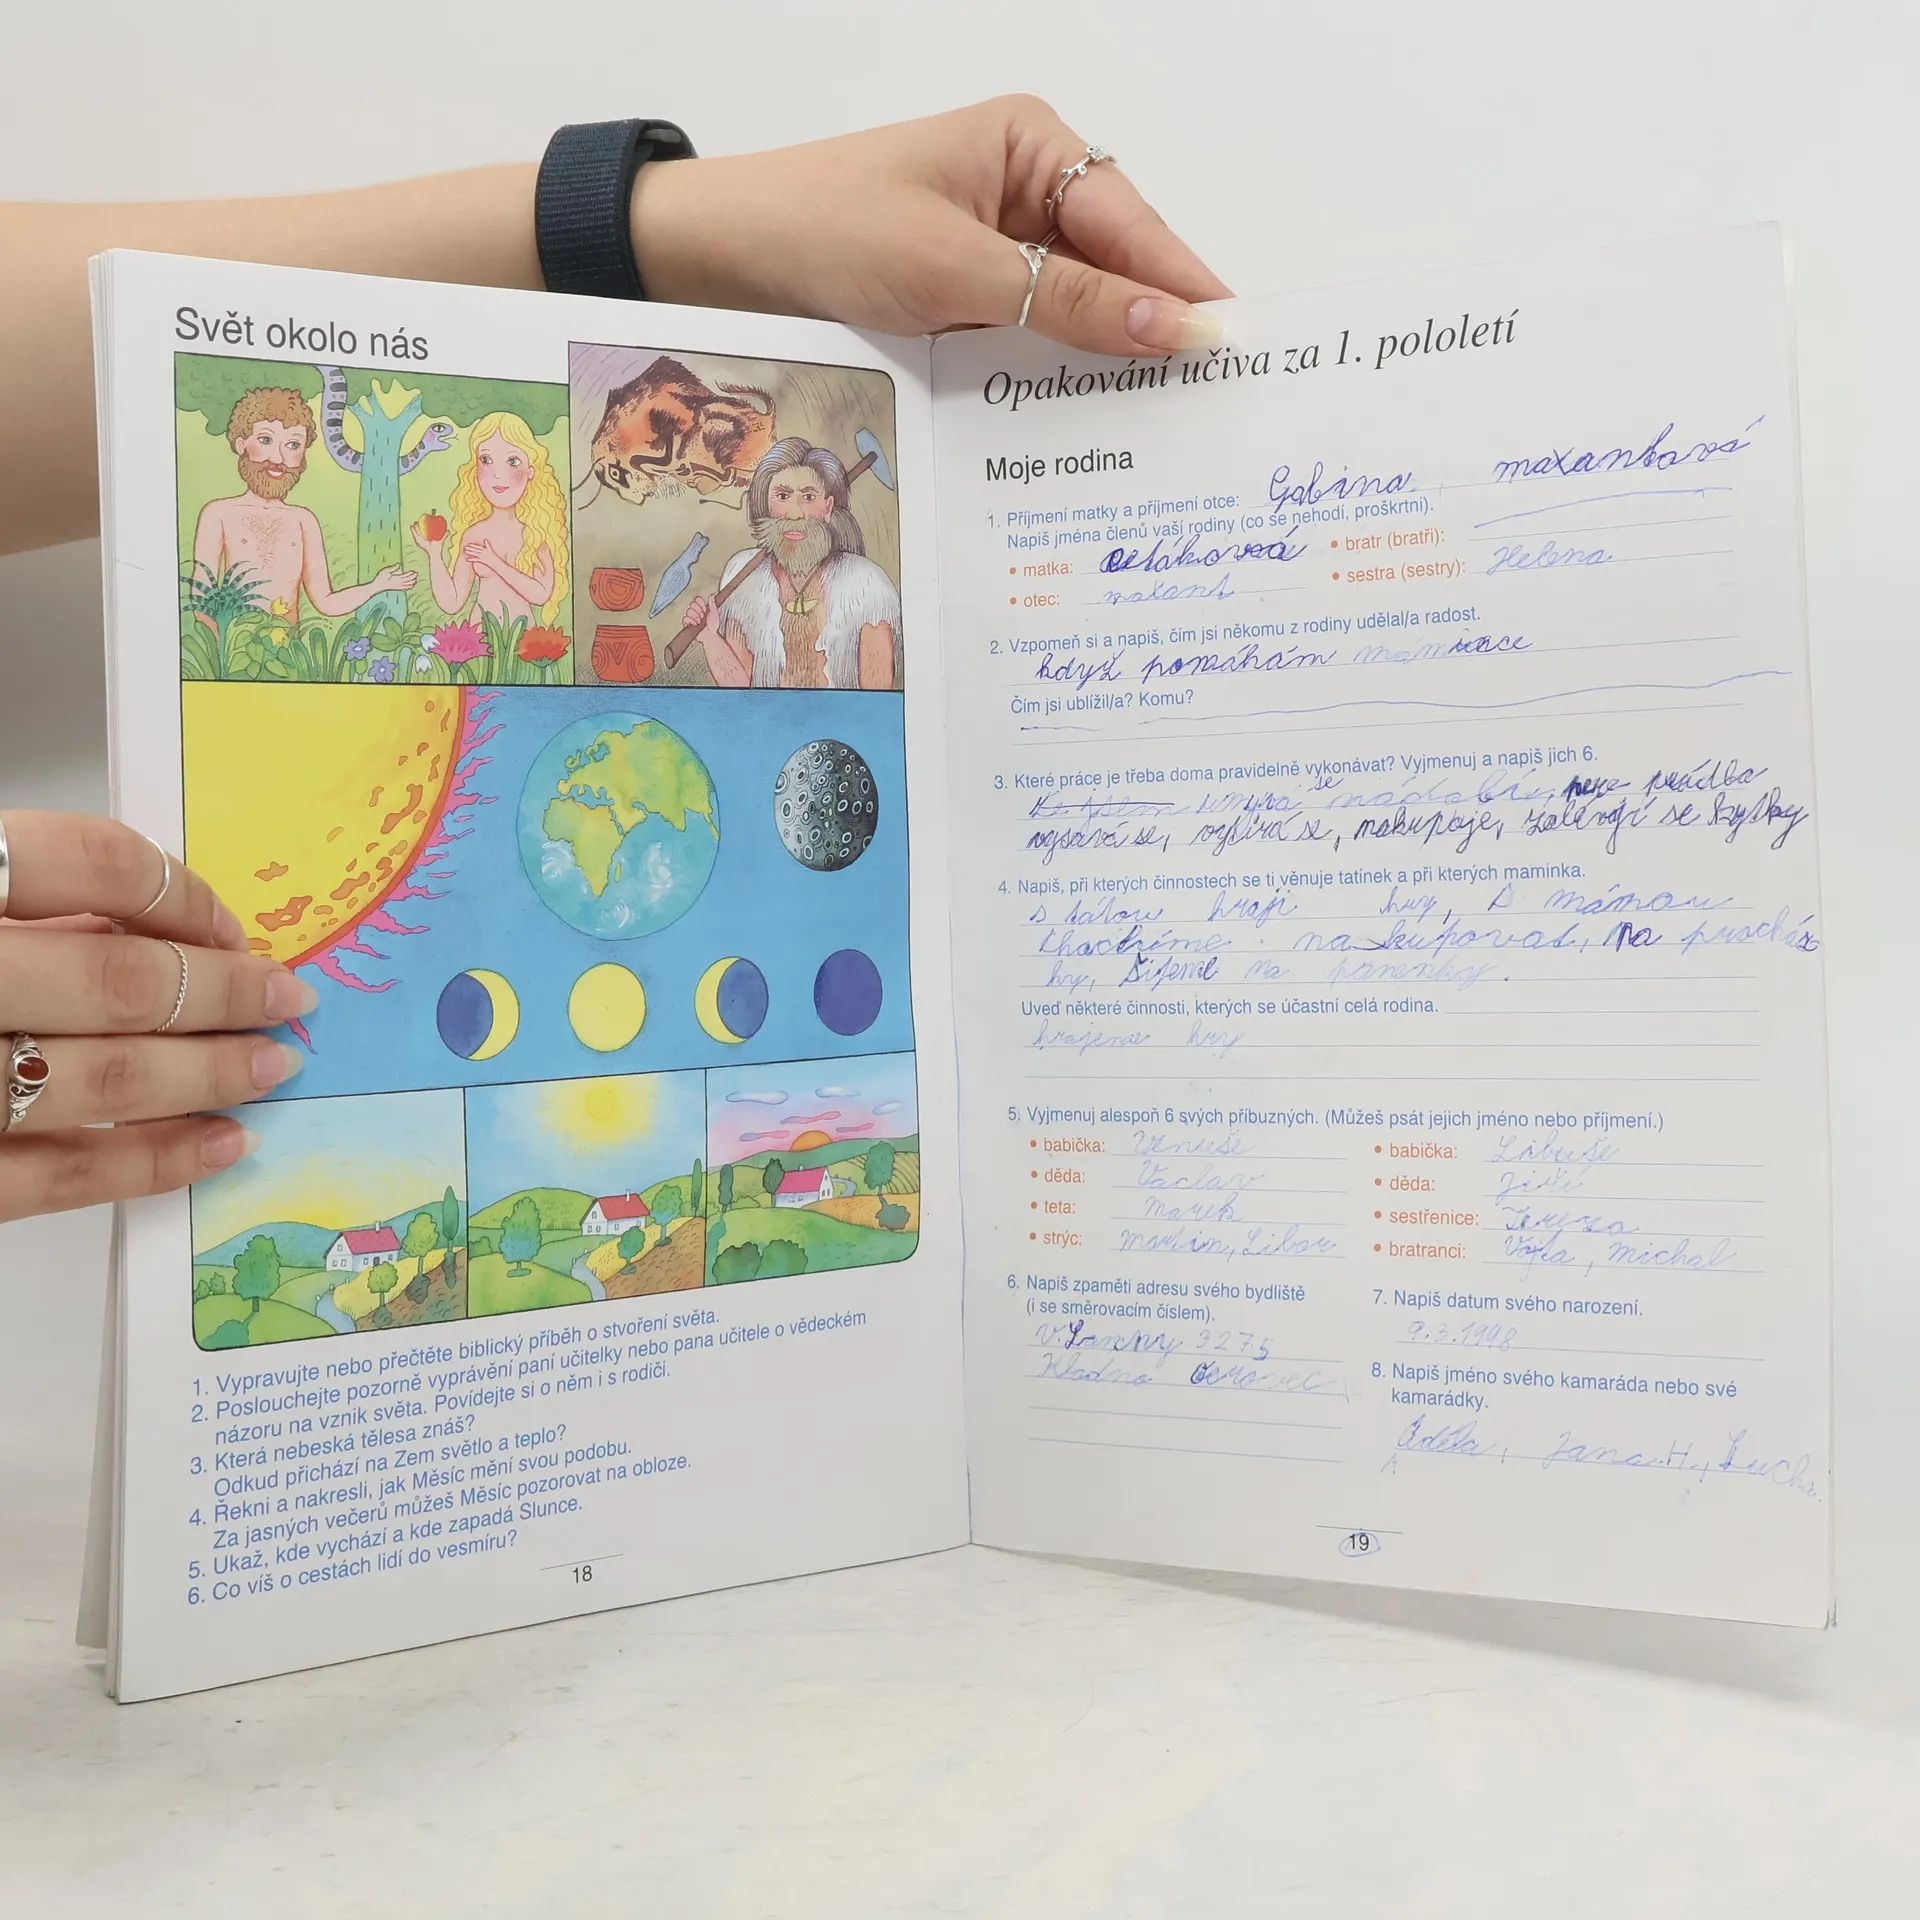 Svět okolo nás
1. Vypravujte nebo přečtěte biblický příběh o stvoření světa.
2. Poslouchejte pozorně vyprávění paní učitelky nebo pana učitele o vědeckém
názoru na vznik světa. Povídejte si o něm i s rodiči.
3. Která nebeská tělesa znáš?
Odkud přichází na Zem světlo a teplo?
4. Řekni a nakresli, jak Měsíc mění svou podobu.
Za jasných večerů můžeš Měsíc pozorovat na obloze.
5. Ukaž, kde vychází a kde zapadá Slunce.
6. Co víš o cestách lidí do vesmíru?
18
Opakování učiva za 1. pololetí
Moje rodina
1. Příjmení matky a příjmení otce: Gabina
Napiš jména členů vaší rodiny (co se nehodí, proškrtni).
• matka:
• bratr (bratři):
• otec:
• sestra (sestry): Helena
2. Vzpomeň si a napiš, čím jsi někomu z rodiny udělal/a radost.
když pomáhám
Čím jsi ublížil/a? Komu?
3. Které práce je třeba doma pravidelně vykonávat? Vyjmenuj a napiš jich 6.
umývá se nádobí, pere prádlo
vysává se, vytírá se, nakupuje, zalévají se kytky
4. Napiš, při kterých činnostech se ti věnuje tatínek a při kterých maminka.
s tátou hraji hry, s mámou
chodíme na kupovat, na procház
ky, šijeme na panenky.
Uveď některé činnosti, kterých se účastní celá rodina.
hrajeme hry
5. Vyjmenuj alespoň 6 svých příbuzných. (Můžeš psát jejich jméno nebo příjmení.)
• babička: Venuše
• babička: Libuše
• děda: Václav
• děda: Jiří
• teta: Marek
• sestřenice: Tereza
• strýc: Martin, Libor
• bratranci: Vojta, Michal
6. Napiš zpaměti adresu svého bydliště
(i se směrovacím číslem).
3275
Kladno
7. Napiš datum svého narození.
9.3.1998
8. Napiš jméno svého kamaráda nebo své
kamarádky.
Adéla, Jana H.,
19